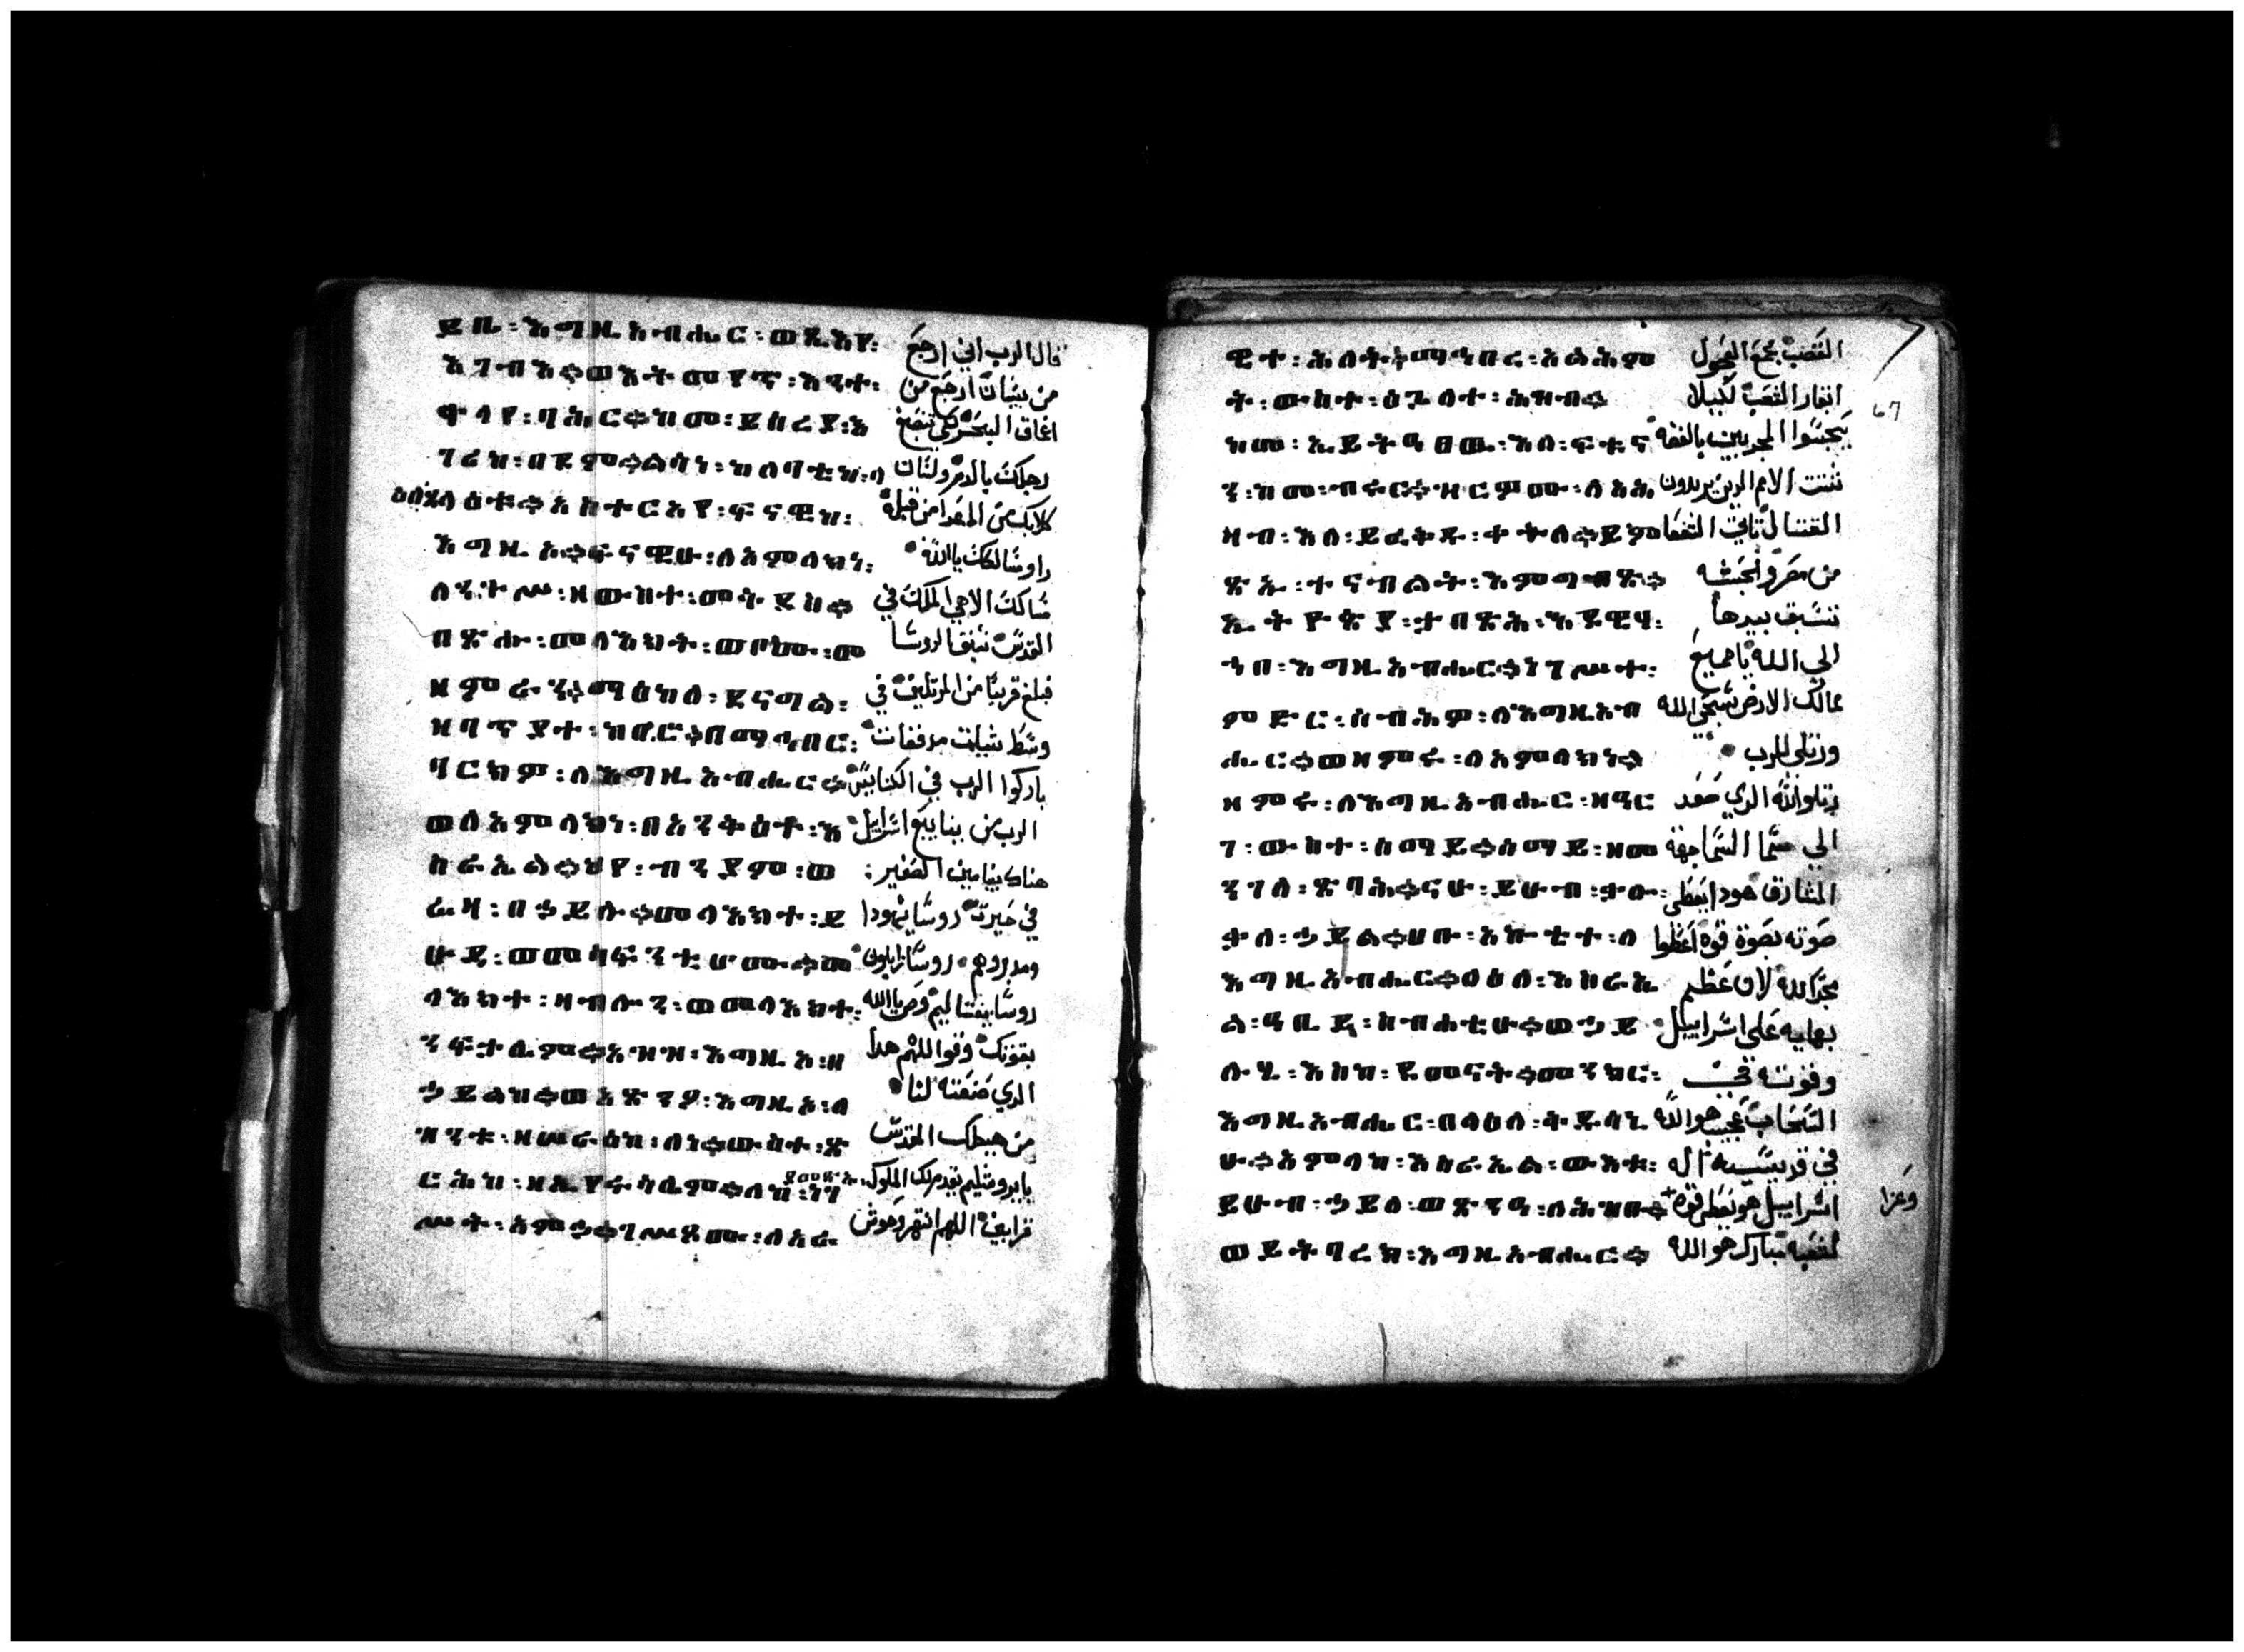 ይቤ፡እግዚአብሔር፡ወዴእየ፡ قال الرب اني ارجع
እገብእ፨ወእትመየጥ፡እንተ፡ من بيسان ارجع من
ቀላየ፡ባሕር፨ከመ፡ይስረይ፡እ اعماق البحر لكي تنصبغ
ግረከ፡በደም፨ልሳነ፡ከለባቲከ፡ላ رجلك بالدم ولسان
ዕለጸላዕት፨አስተርአየ፡ፍናዊከ፡ كلابك من الاعدا من قبله
እግዚአ፨ፍናዊሁ፡ለአምላኪነ፡ راو مسالكك يا الله
ለንጉሥ፡ዘውስተ፡መቅደስ፨ مسالك الاهي الملك في
በጽሑ፡መላእክት፡ :መ القدس سبق الروسا
ዘምራን፨ማዕከለ፡ደናግል፡ فبلغ قريبا من المرتلين في
ዘባጥያተ፡ከበሮ፨በማኅበር፡ وسط شبات مدففات
ባርክዎ፡ለእግዚአብሔር፨ باركوا الرب في الكنايس
ወለአምላክነ፡በአንቅዕት፡እ الرب من ينابيع اسراييل
ስራኤል፨ህየ፡ብንያም፡ወ هناك بنيامين الصغير
ሬዛ፡በኃይሉ፨መላእክተ፡ይ في حيرت روسا يهودا
ሁዳ፡ወመሳፍንቲሆሙ፨መ ومدبروهم روسا زابلون
ላእክተ፡ዛብሎን፡ወመላእክተ፡ روسا نفتاليم ومر يا الله
ንፍታሌም፨አዝዝ፡እግዚአ፡በ بقوتك وقوا اللهم هدا
ኃይልከ፨ወአጽንዖ፡እግዚአ፡ለ الدي صنعته لنا
ዝንቱ፡ዘሠራዕከ፡ለነ፨ውስተ፡ጽ من هيكلك المقدس
ርሕከ፡ዘኢየሩሳሌም፨ለከ፡ነገ ያመጽኡ يا يروشليم تقدم لك الملوك
ሥት፡አምኃ፨ገሥጾሙ፡ለአራ قرابين اللهم انتهر وحوش
ዊተ፡ሕለት፨ማኅበረ፡አልሕም القصب مجمع العجول
ት፡ውስተ፡ዕጐለተ፡ሕዝብ፨ ابقار الشعب لكيلا
ከመ፡ኢይትዓፀዉ፡እለ፡ፍቱና يحبسوا المجربين بالفضه
ን፡ከመ፡ብሩር፨ዝርዎሙ፡ለአሕ شتت الامم الدين يريدون
ዛብ፡እለ፡ይፈቅዱ፡ቀትለ፨ይም القتال
ጽኡ፡ተናብልት፡እምግብጽ፨ من مصر والحبشه
ኢትዮጵያ፡ታበጽሕ፡እደዊሃ፡ تسبق بيدها
ኀበ፡እግዚአብሔር፨ነገሥተ፡ الي الله يا جميع
ምድር፡ሰብሕዎ፡ለእግዚአብ ممالك الارض سبحي الله
ሔር፨ወዘምሩ፡ለአምላክነ፨ ورتلي للرب
ዘምሩ፡ለእግዚአብሔር፡ዘዓር رتلو الله الدي صعد
ገ፡ውስተ፡ሰማይ፨ሰማይ፡ዘመ الي سما السما جهة
ንገለ፡ጽባሕ፨ናሁ፡ይሁብ፡ቃሎ፡ المشارق هودا يعطي
ቃለ፡ኃይል፨ሀቡ፡አኰቴተ፡ለ صوته بصوة قوه اعطوا
እግዚአብሔር፨ላዕለ፡እስራኤ مجدا لله لان عظيم
ል፡ዓቢይ፡ስብሐቲሁ፨ወኃይ بهايه على اسراييل
ሉሂ፡እስከ፡ደመናት፨መንክር፡ وقوته في
እግዚአብሔር፡በላዕለ፡ቅዱሳኒ السحاب عجيب هو الله
ሁ፨አምላከ፡እስራኤል፡ውእቱ፡ في قديسيه اله
ይሁብ፡ኃይለ፡ወጽንዓ፡ለሕዝቡ፨ اسراييل هو يعطي قوه
وعزا
ወይትባረክ፡እግዚአብሔር፨ لشعبه تبارك هو الله
67